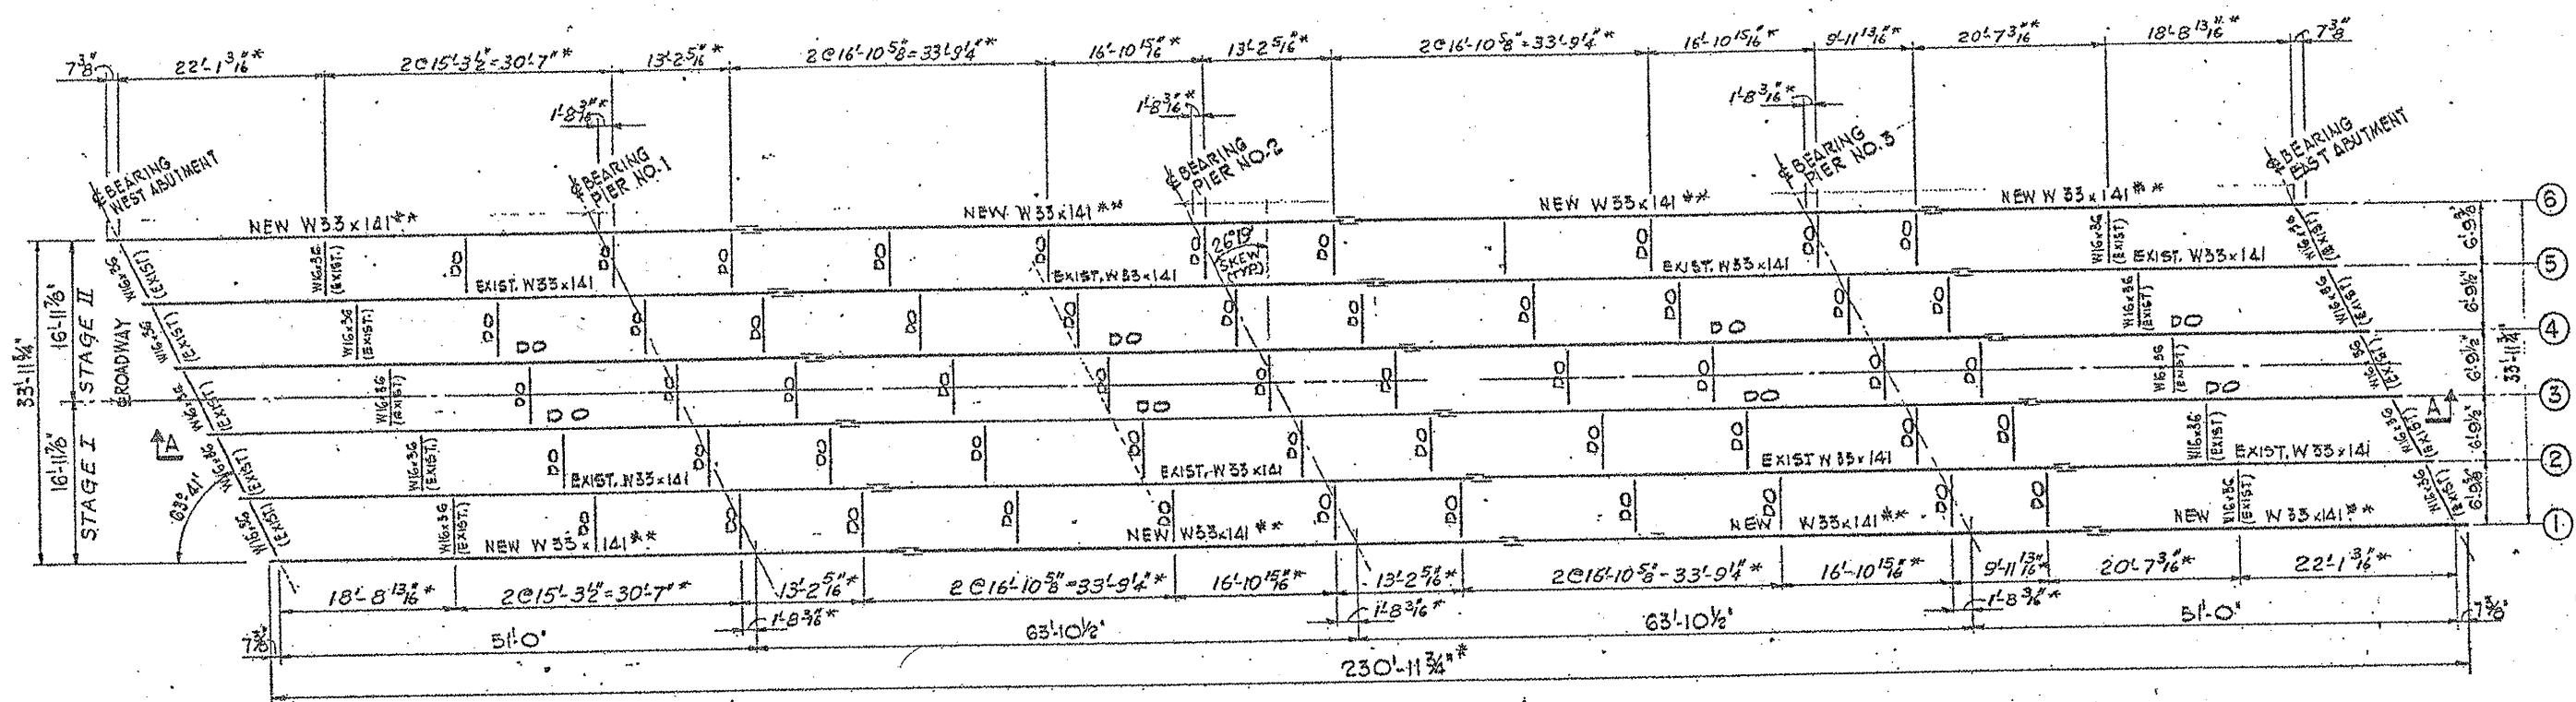 7 3/8"
22'-1 3/16"*
2@15'-3 1/2"=30'-7"*
13'-2 5/16"*
2@16'-10 5/8"=33'-9 1/4"*
16'-10 15/16"*
13'-2 5/16"*
2@16'-10 5/8"=33'-9 1/4"*
16'-10 15/16"*
9'-11 13/16"*
20'-7 3/16"*
18'-8 13/16"*
7 3/8"
1'-8 3/16"*
1'-8 3/16"*
1'-8 3/16"*
℄ BEARING
WEST ABUTMENT
℄ BEARING
PIER NO. 1
℄ BEARING
PIER NO. 2
℄ BEARING
PIER NO. 3
℄ BEARING
EAST ABUTMENT
NEW W33x141**
NEW W33x141**
NEW W33x141**
NEW W33x141**
6
W16x36
(EXIST.)
W16x36
(EXIST.)
DO
DO
DO
DO
DO
DO
DO
DO
DO
26°19'
SKEW
(TYP.)
W16x36
(EXIST)
W16x36
(EXIST)
6'-9 3/8"
EXIST. W33x141
EXIST. W33x141
EXIST. W33x141
EXIST. W33x141
5
W16x36
(EXIST)
W16x36
(EXIST.)
DO
DO
DO
DO
DO
DO
DO
DO
DO
DO
DO
W16x36
(EXIST)
W16x36
(EXIST)
6'-9 1/2"
DO
DO
DO
DO
4
℄ ROADWAY
W16x36
(EXIST)
W16x36
(EXIST)
DO
DO
DO
DO
DO
DO
DO
DO
DO
DO
DO
W16x36
(EXIST)
W16x36
(EXIST)
6'-9 1/2"
DO
DO
DO
DO
3
A
W16x36
(EXIST)
W16x36
(EXIST.)
DO
DO
DO
DO
DO
DO
DO
DO
DO
DO
DO
W16x36
(EXIST)
W16x36
(EXIST)
A
6'-9 1/2"
EXIST. W33x141
EXIST. W33x141
EXIST W33x141
EXIST. W33x141
2
W16x36
(EXIST)
W16x36
(EXIST.)
DO
DO
DO
DO
DO
DO
DO
DO
DO
DO
DO
W16x36
(EXIST)
W16x36
(EXIST)
6'-9 3/8"
NEW W33x141**
NEW W33x141**
NEW W33x141**
NEW W33x141**
1
33'-11 3/4"
16'-11 7/8"
STAGE II
16'-11 7/8"
STAGE I
63°41'
33'-11 3/4"
18'-8 13/16"*
2@15'-3 1/2"=30'-7"*
13'-2 5/16"*
2@16'-10 5/8"=33'-9 1/4"*
16'-10 15/16"*
13'-2 5/16"*
2@16'-10 5/8"=33'-9 1/4"*
16'-10 15/16"*
9'-11 13/16"*
20'-7 3/16"*
22'-1 3/16"*
1'-8 3/16"*
1'-8 3/16"*
1'-8 3/16"*
7 3/8"
51'-0"
63'-10 1/2"
63'-10 1/2"
51'-0"
7 3/8"
230'-11 3/4"*